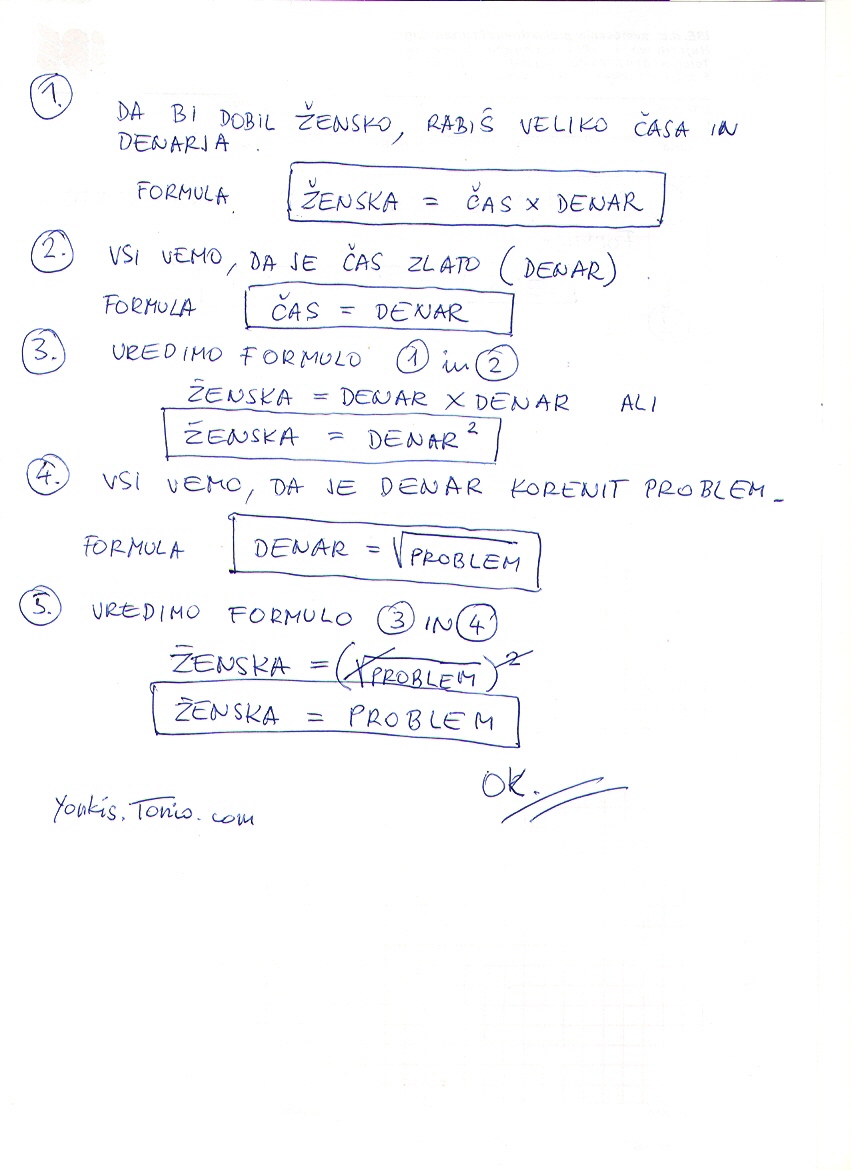 1.
DA BI DOBIL ŽENSKO, RABIŠ VELIKO ČASA IN
DENARJA.
FORMULA. ŽENSKA = ČAS X DENAR
2. VSI VEMO, DA JE ČAS ZLATO (DENAR).
FORMULA ČAS = DENAR
3. UREDIMO FORMULO 1 in 2
ŽENSKA = DENAR X DENAR ALI
ŽENSKA = DENAR²
4. VSI VEMO, DA JE DENAR KORENIT PROBLEM.
FORMULA DENAR = √PROBLEM
5. UREDIMO FORMULO 3 IN 4
ŽENSKA = (√PROBLEM)²
ŽENSKA = PROBLEM
OK.
Yonkis.Tonio.com